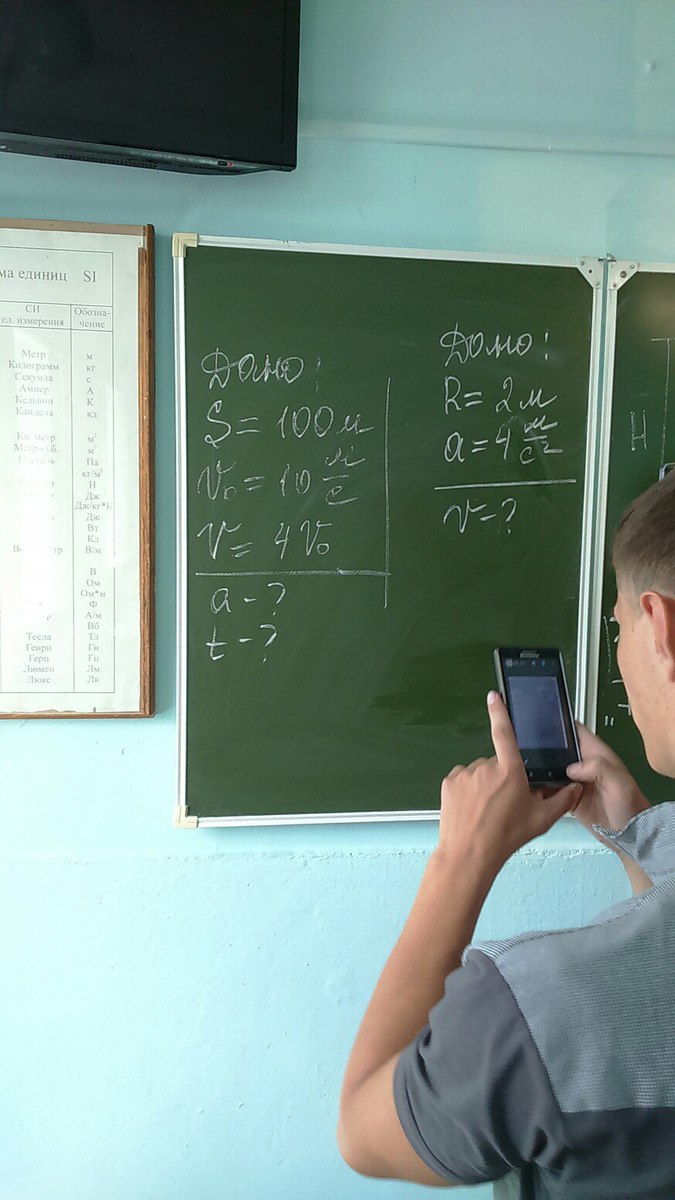 ма единиц SI
СИ
ед. измерения
Обозна-
чение
Метр м
Килограмм кг
Секунда с
Ампер А
Кельвин К
Кандела кд
Кв. метр м²
Метр куб. м³
Паскаль Па
кг/м³
Н
Дж
Дж/кг*К
Дж
Вт
Кл
В/м
В
Ом
Ом*м
Ф
А/м
Вб
Тесла Тл
Генри Гн
Герц Гц
Люмен Лм
Люкс Лк
Дано:
S = 100 м
V₀ = 10 м/с
V = 4 V₀
a - ?
t - ?
Дано:
R = 2 м
a = 4 м/с²
v - ?
H